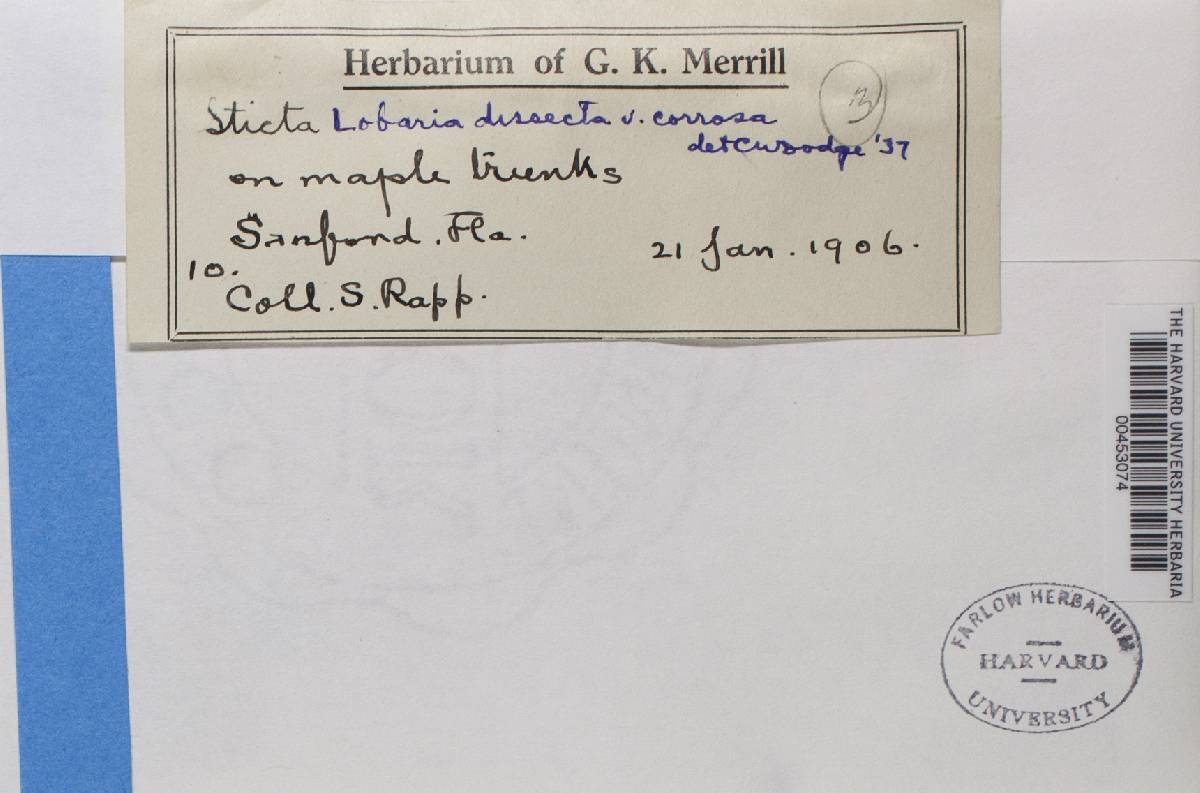 Herbarium of G. K. Merrill
Sticta Lobaria dissecta v. corrosa
det CWDodge '37
13
on maple trunks
Sanford. Fla.
21 Jan. 1906.
10.
Coll. S. Rapp.
THE HARVARD UNIVERSITY HERBARIA
00453074
FARLOW HERBARIUM
HARVARD
UNIVERSITY